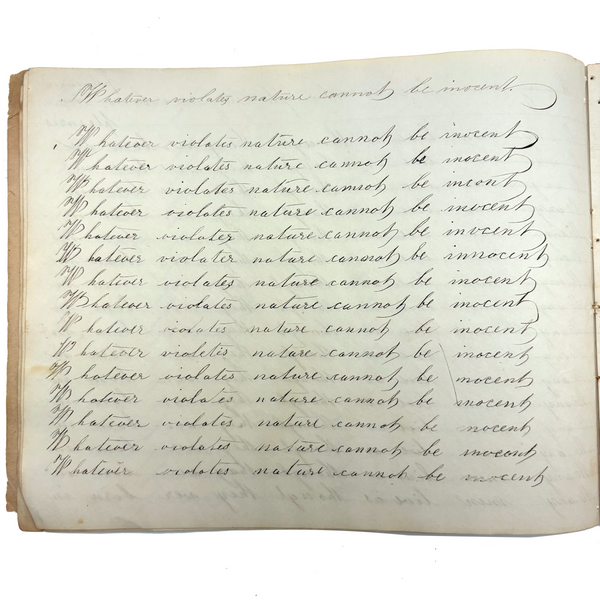 Whatever violates nature cannot be inocent.
Whatever violates nature cannot be inocent
Whatever violates nature cannot be inocent
Whatever violates nature cannot be incont
Whatever violates nature cannot be inocent
Whatever violates nature cannot be inocent
Whatever violates nature cannot be innocent
Whatever violates nature cannot be inocent
Whatever violates nature cannot be inocent
Whatever violates nature cannot be inocent
Whatever violetis nature cannot be inocent
Whatever violates nature cannot be inocent
Whatever violates nature cannot be inocent
Whatever violates nature cannot be nocent
Whatever violates nature cannot be inocent
Whatever violates nature cannot be inocent